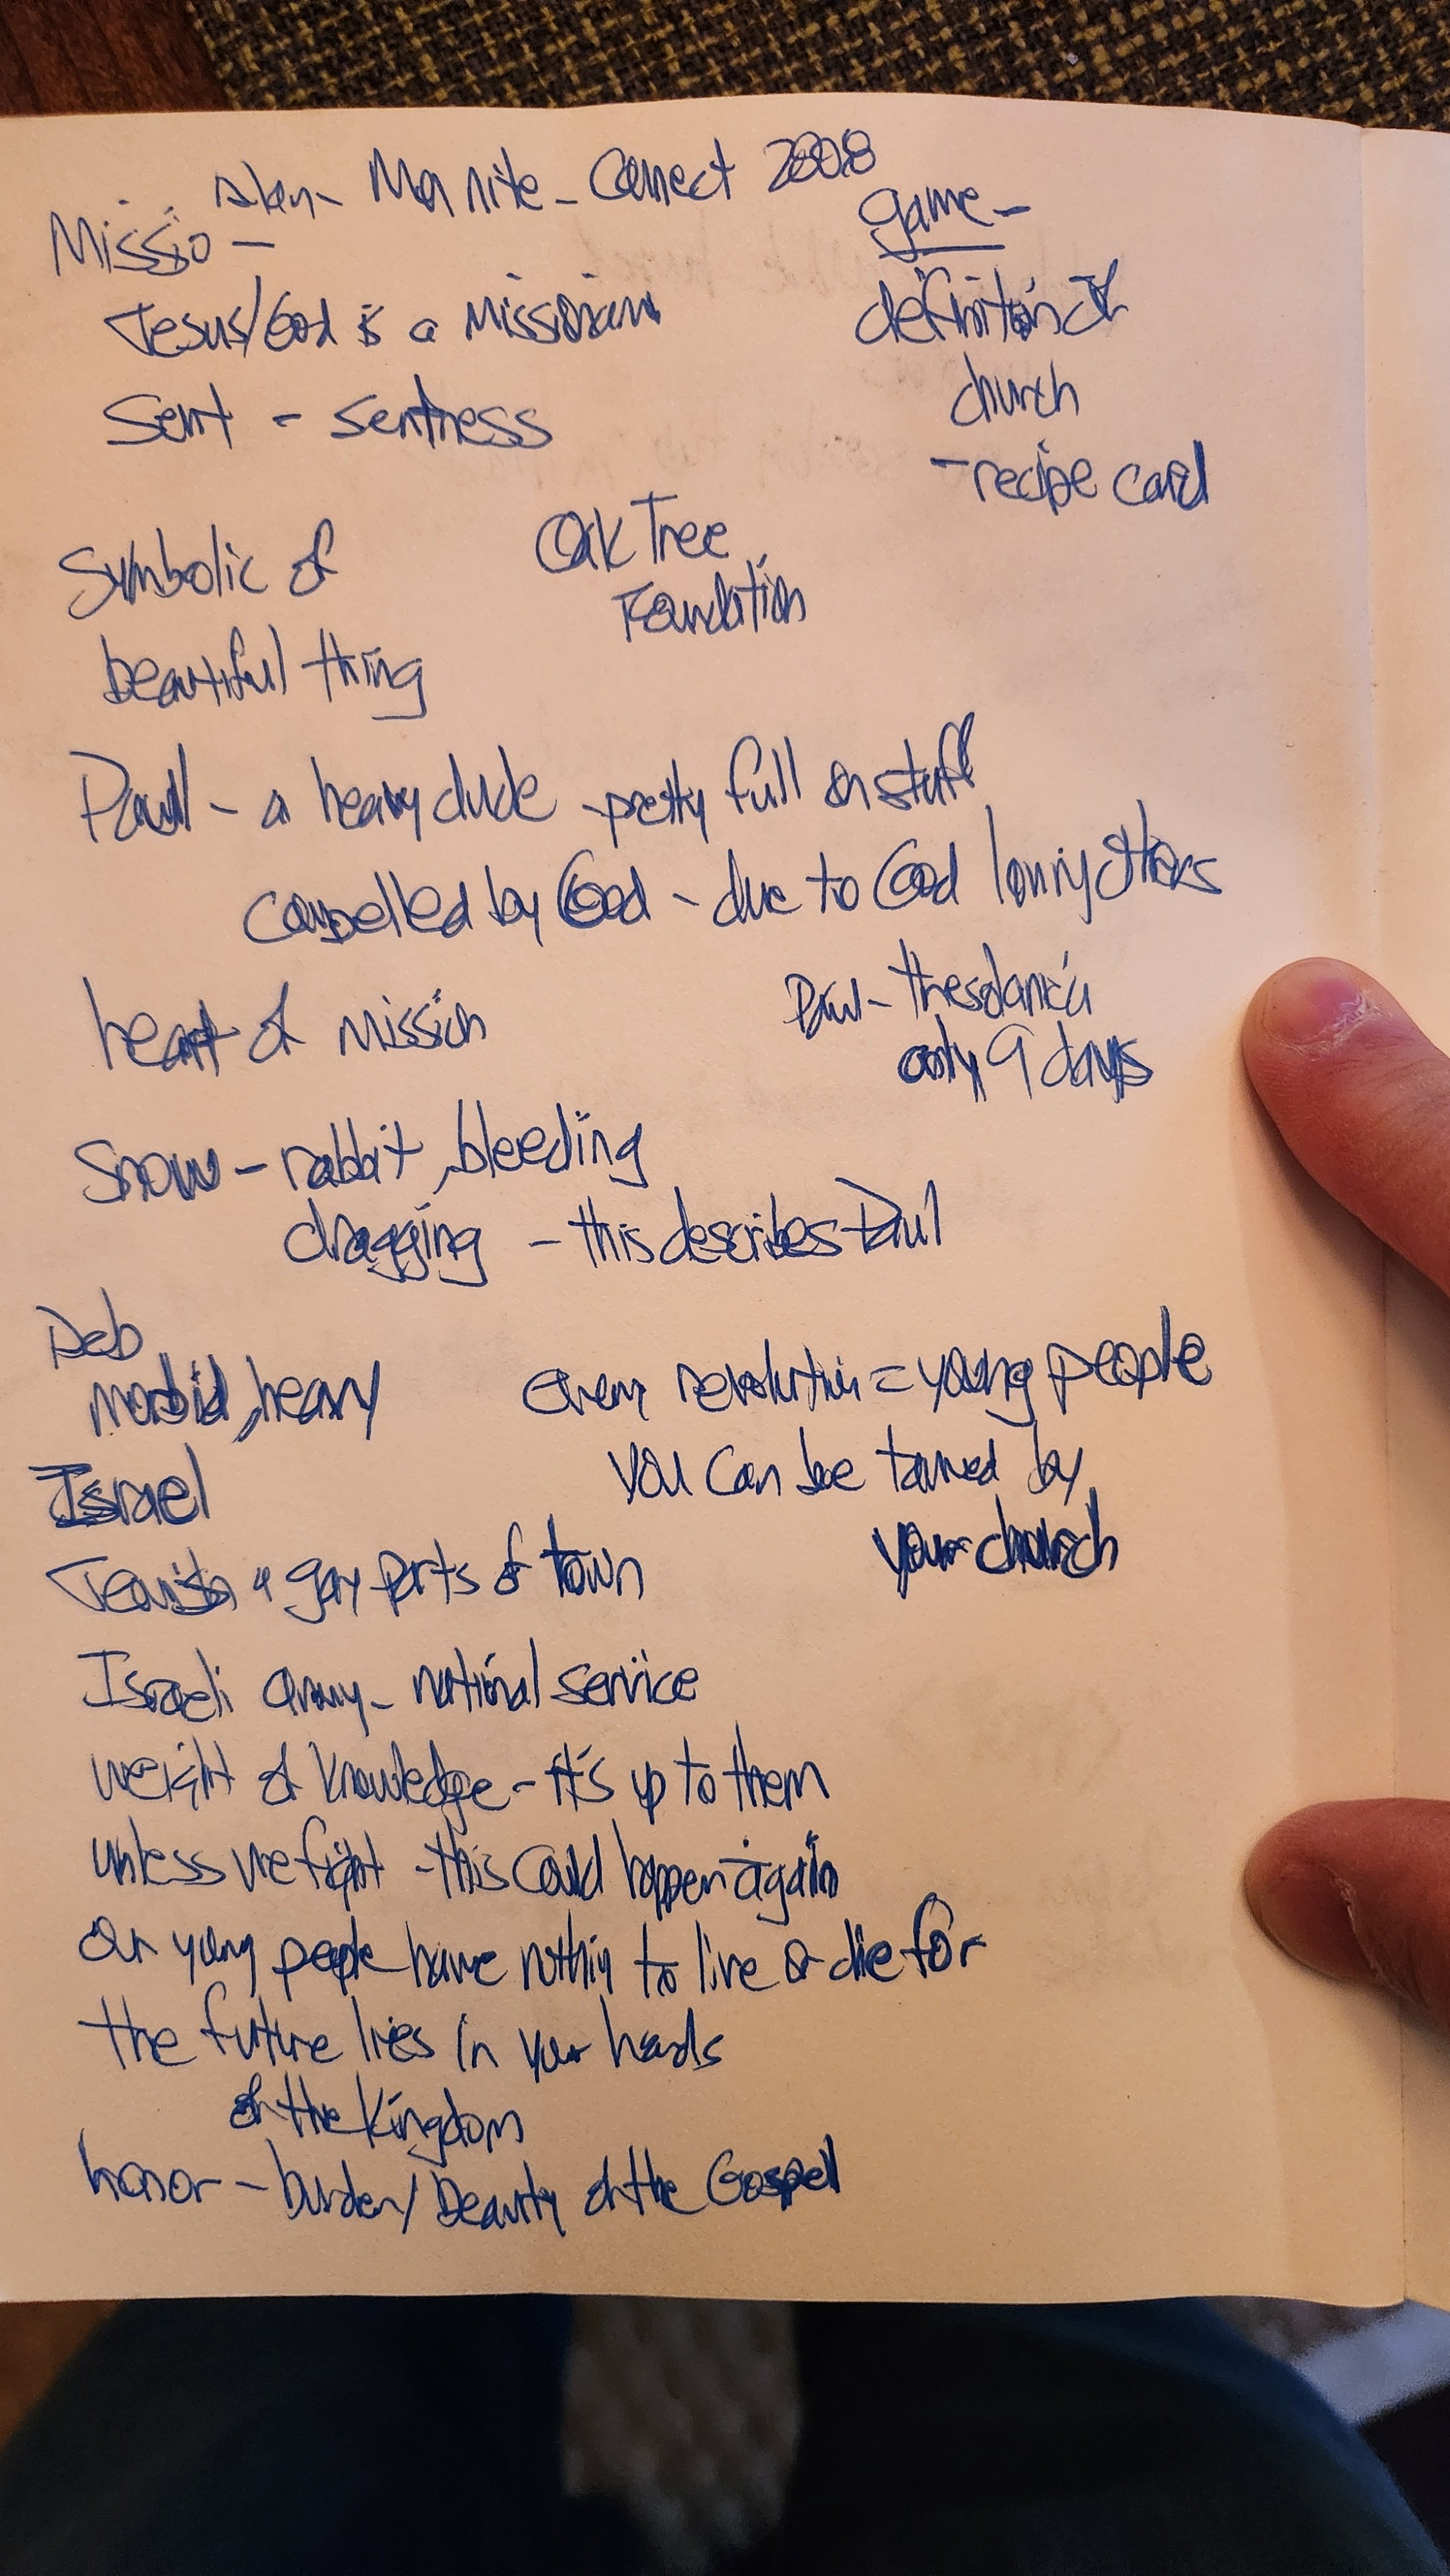 Alan - Mon nite - Connect 2008
Missio -
game -
Jesus/God is a missionary
definition of
church
Sent - sentness
- recipe card
Symbolic of
Oak Tree
Foundation
beautiful thing
Paul - a heavy dude - pretty full on stuff
compelled by God - due to God loving others
heart of mission
Paul - Thesolanica
only 9 days
Snow - rabbit, bleeding
dragging - this describes Paul
Deb
morbid, heavy
every revolution = young people
you can be tamed by
your church
Israel
Jewish & gay parts of town
Israeli army - national service
weight of knowledge - it's up to them
unless we fight - this could happen again
our young people have nothin to live or die for
the future lies in your hands
of the Kingdom
honor - burden/beauty of the Gospel